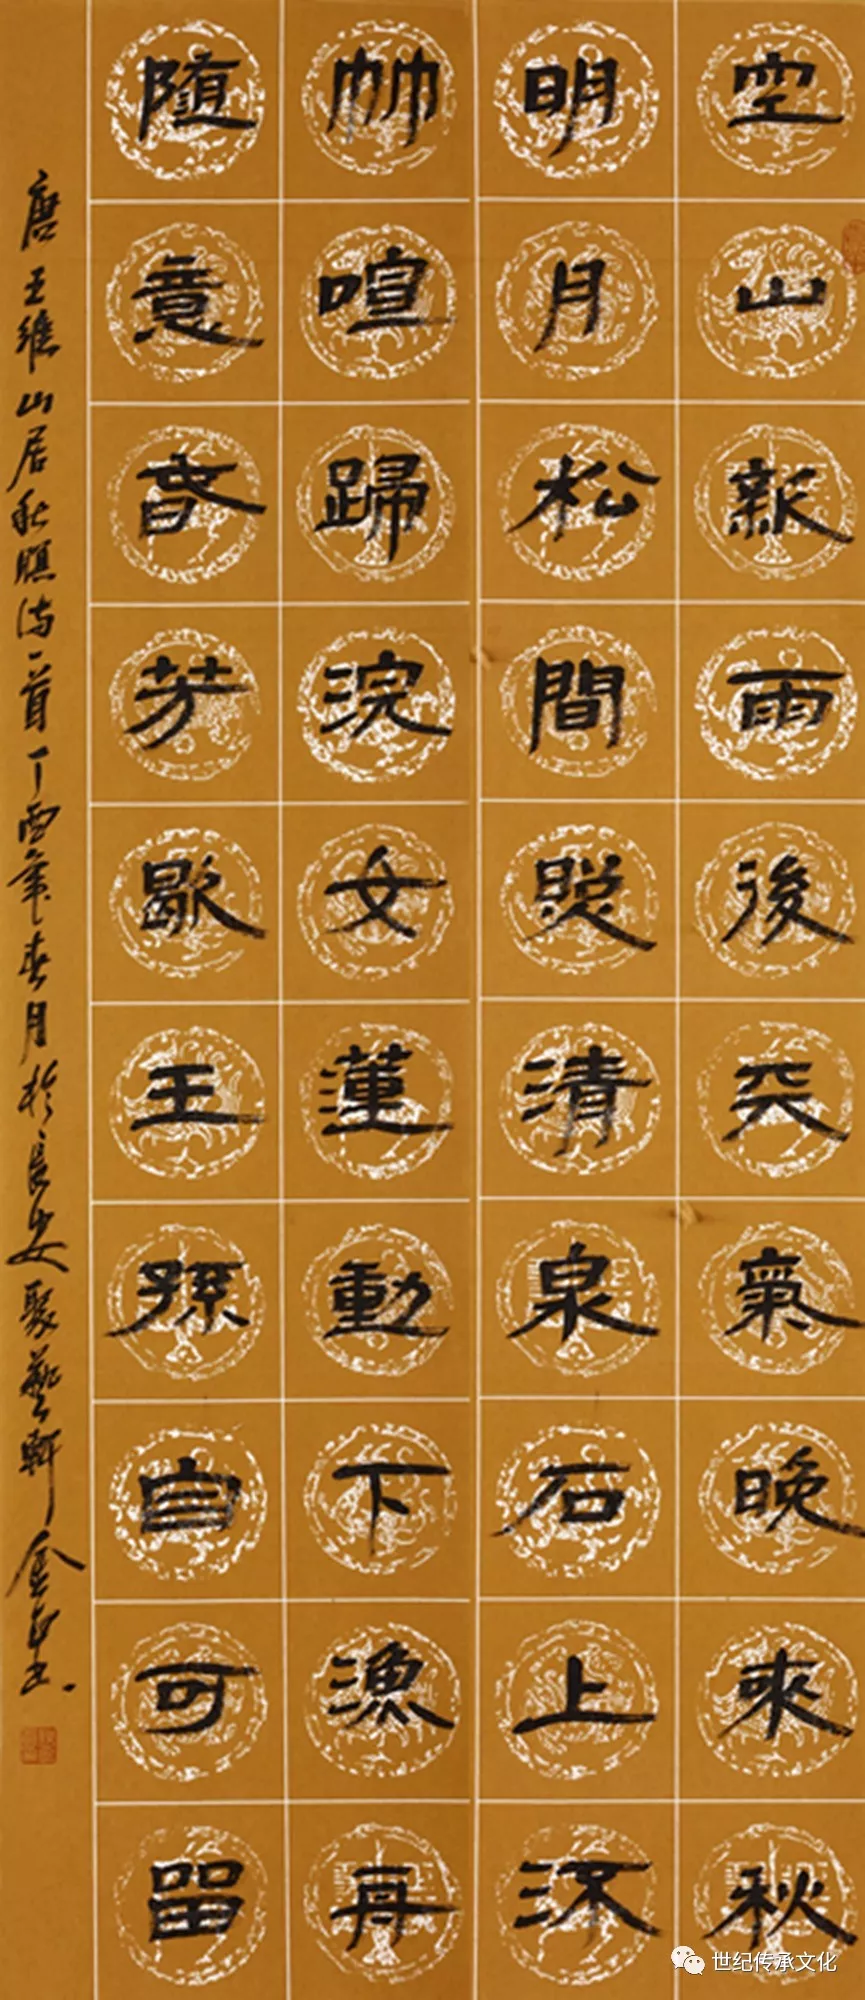 空山新雨後天氣晚來秋
明月松間照清泉石上流
竹喧歸浣女蓮動下漁舟
隨意春芳歇王孫自可留
唐王維山居秋暝詩一首丁酉年春月於長安聚藝軒金書
世纪传承文化